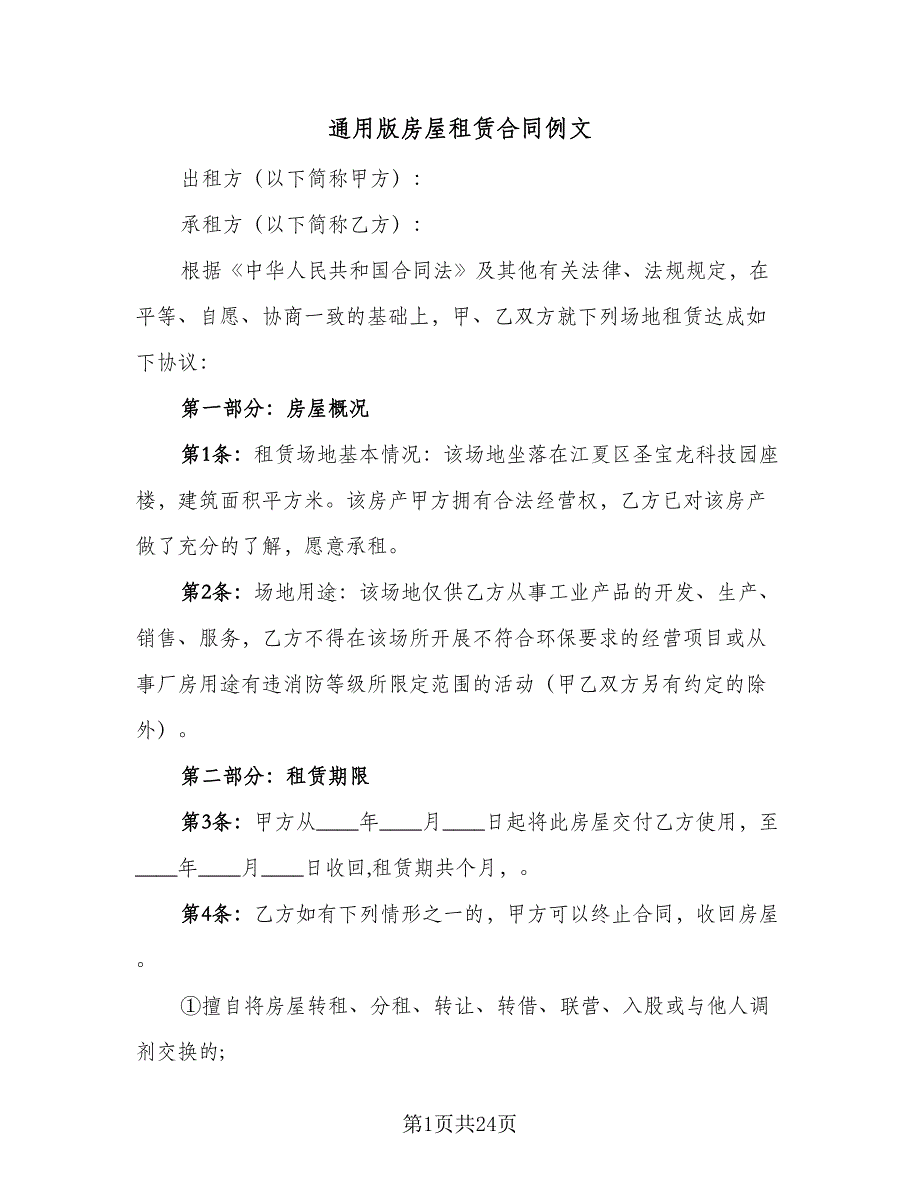 通用版房屋租赁合同例文
出租方（以下简称甲方）：
承租方（以下简称乙方）：
根据《中华人民共和国合同法》及其他有关法律、法规规定，在
平等、自愿、协商一致的基础上，甲、乙双方就下列场地租赁达成如
下协议：
第一部分：房屋概况
第1条：租赁场地基本情况：该场地坐落在江夏区圣宝龙科技园座
楼，建筑面积平方米。该房产甲方拥有合法经营权，乙方已对该房产
做了充分的了解，愿意承租。
第2条：场地用途：该场地仅供乙方从事工业产品的开发、生产、
销售、服务，乙方不得在该场所开展不符合环保要求的经营项目或从
事厂房用途有违消防等级所限定范围的活动（甲乙双方另有约定的除
外）。
第二部分：租赁期限
第3条：甲方从____年____月____日起将此房屋交付乙方使用，至
____年____月____日收回,租赁期共个月，。
第4条：乙方如有下列情形之一的，甲方可以终止合同，收回房屋
。
①擅自将房屋转租、分租、转让、转借、联营、入股或与他人调
剂交换的;
第1页共24页